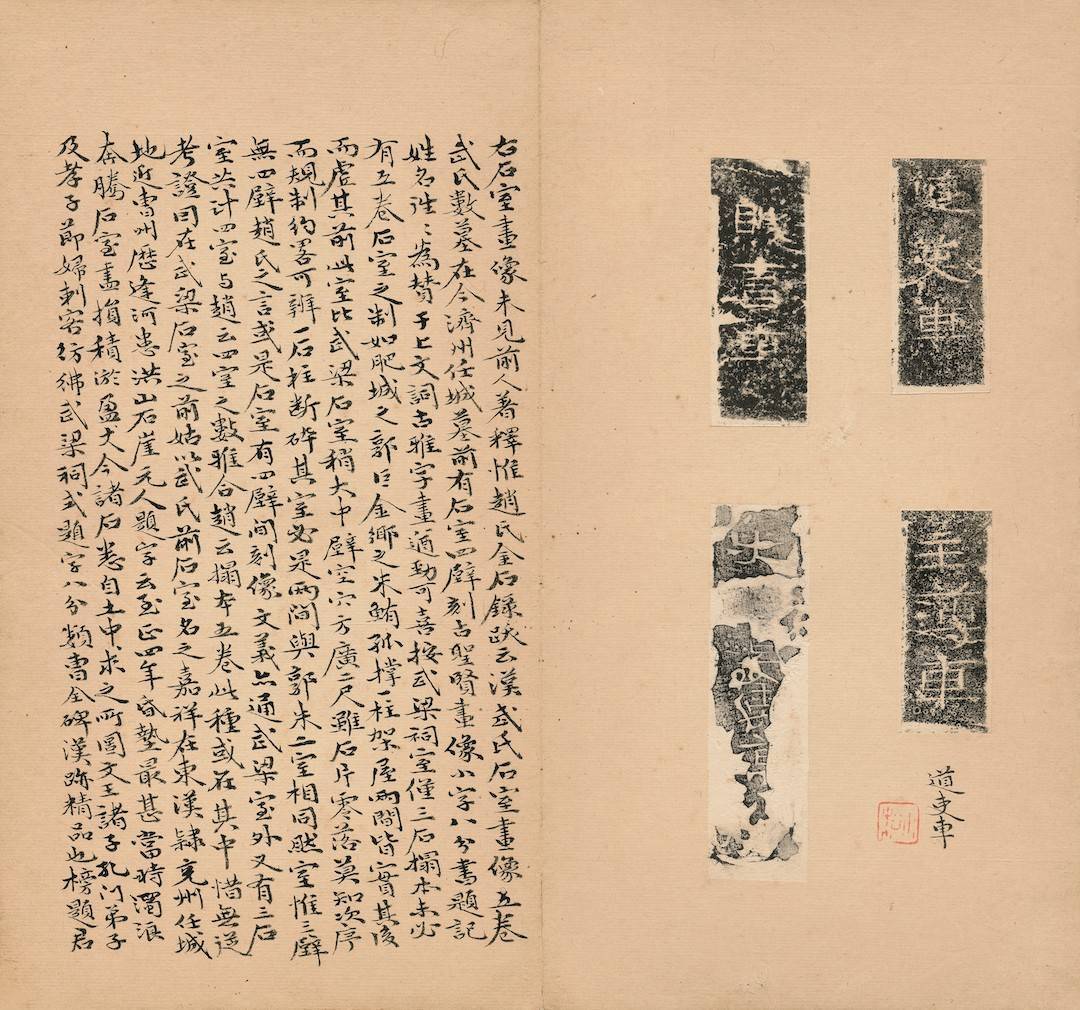 主簿車
道吏車
賊曹車
右石室畫像未見前人著釋惟趙氏金石錄跋云漢武氏石室畫像五卷
武氏數墓在今濟州任城墓前有石室四壁刻古聖賢畫像小字八分書題記
姓名往〻為贊于上文詞古雅字畫遒勁可喜按武梁祠室僅三石搨本未必
有五卷石室之制如肥城之郭巨金鄉之朱鮪孤撐一柱架屋兩間皆實其後
而虛其前此室比武梁石室稍大中壁空穴方廣二尺雖石片零落莫知次序
而規制約畧可辨一石柱斷碎其室必是兩間與郭朱二室相同然室惟三壁
無四壁趙氏之言或是石室有四壁間刻像文義亦通武梁室外又有三石
室共計四室與趙云四室之數雖合趙云搨本五卷此種或在其中惜無從
考證因在武梁石室之前姑以武氏前石室名之嘉祥在東漢隸兗州任城
地近曹州歷逢河患洪山石崖元人題字云至正四年昏墊最甚當時濁浪
奔騰石室盡損積淤盈丈今諸石悉自土中求之所圖文王諸子孔門弟子
及孝子節婦刺客彷彿武梁祠式題字八分類曹全碑漢跡精品也榜題君